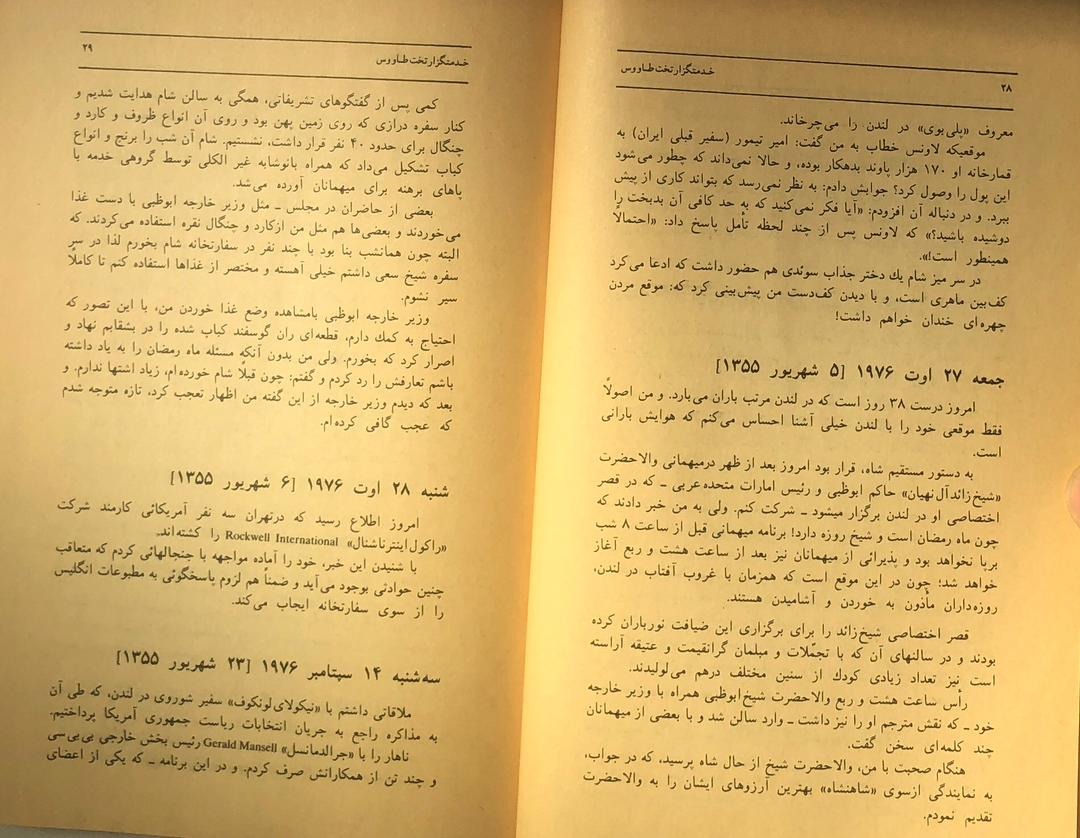 ۲۸
خدمتگزار تخت طاووس
معروف «پلی‌بوی» در لندن را می‌چرخاند.
موقعیکه لاونس خطاب به من گفت: امیر تیمور (سفیر قبلی ایران) به
قمارخانه او ۱۷۰ هزار پاوند بدهکار بوده، و حالا نمی‌داند که چطور می‌شود
این پول را وصول کرد؟ جوابش دادم: به نظر نمی‌رسد که بتواند کاری از پیش
ببرد. و در دنباله آن افزودم: «آیا فکر نمی‌کنید که به حد کافی آن بدبخت را
دوشیده باشید؟» که لاونس پس از چند لحظه تأمل پاسخ داد: «احتمالاً
همینطور است!».
در سر میز شام یك دختر جذاب سوئدی هم حضور داشت که ادعا می‌کرد
کف‌بین ماهری است، و با دیدن کف‌دست من پیش‌بینی کرد که: موقع مردن
چهره‌ای خندان خواهم داشت!
جمعه ۲۷ اوت ۱۹۷۶ [۵ شهریور ۱۳۵۵]
امروز درست ۳۸ روز است که در لندن مرتب باران می‌بارد. و من اصولاً
فقط موقعی خود را با لندن خیلی آشنا احساس می‌کنم که هوایش بارانی
است.
به دستور مستقیم شاه، قرار بود امروز بعد از ظهر درمیهمانی والاحضرت
«شیخ زائد آل نهیان» حاکم ابوظبی و رئیس امارات متحده عربی ـ که در قصر
اختصاصی او در لندن برگزار میشود ـ شرکت کنم. ولی به من خبر دادند که
چون ماه رمضان است و شیخ روزه دارد! برنامه میهمانی قبل از ساعت ۸ شب
برپا نخواهد بود و پذیرائی از میهمانان نیز بعد از ساعت هشت و ربع آغاز
خواهد شد؛ چون در این موقع است که همزمان با غروب آفتاب در لندن،
روزه‌داران مأذون به خوردن و آشامیدن هستند.
قصر اختصاصی شیخ زائد را برای برگزاری این ضیافت نورباران کرده
بودند و در سالنهای آن که با تجمّلات و مبلمان گرانقیمت و عتیقه آراسته
است نیز تعداد زیادی کودك از سنین مختلف درهم می‌لولیدند.
رأس ساعت هشت و ربع والاحضرت شیخ ابوظبی همراه با وزیر خارجه
خود ـ که نقش مترجم او را نیز داشت ـ وارد سالن شد و با بعضی از میهمانان
چند کلمه‌ای سخن گفت.
هنگام صحبت با من، والاحضرت شیخ از حال شاه پرسید، که در جواب،
به نمایندگی ازسوی «شاهنشاه» بهترین آرزوهای ایشان را به والاحضرت
تقدیم نمودم.
خدمتگزار تخت طاووس
۲۹
کمی پس از گفتگوهای تشریفاتی، همگی به سالن شام هدایت شدیم و
کنار سفره درازی که روی زمین پهن بود و روی آن انواع ظروف و کارد و
چنگال برای حدود ۴۰ نفر قرار داشت، نشستیم. شام آن شب را برنج و انواع
کباب تشکیل می‌داد که همراه بانوشابه غیر الکلی توسط گروهی خدمه با
پاهای برهنه برای میهمانان آورده می‌شد.
بعضی از حاضران در مجلس ـ مثل وزیر خارجه ابوظبی با دست غذا
می‌خوردند و بعضی‌ها هم مثل من ازکارد و چنگال نقره استفاده می‌کردند. که
البته چون همانشب بنا بود با چند نفر در سفارتخانه شام بخورم لذا در سر
سفره شیخ سعی داشتم خیلی آهسته و مختصر از غذاها استفاده کنم تا کاملاً
سیر نشوم.
وزیر خارجه ابوظبی بامشاهده وضع غذا خوردن من، با این تصور که
احتیاج به کمك دارم، قطعه‌ای ران گوسفند کباب شده را در بشقابم نهاد و
اصرار کرد که بخورم. ولی من بدون آنکه مسئله ماه رمضان را به یاد داشته
باشم تعارفش را رد کردم و گفتم: چون قبلاً شام خورده‌ام، زیاد اشتها ندارم. و
بعد که دیدم وزیر خارجه از این گفته من اظهار تعجب کرد، تازه متوجه شدم
که عجب گافی کرده‌ام.
شنبه ۲۸ اوت ۱۹۷۶ [۶ شهریور ۱۳۵۵]
امروز اطلاع رسید که درتهران سه نفر آمریکائی کارمند شرکت
«راکول اینترناشنال» Rockwell International را کشته‌اند.
با شنیدن این خبر، خود را آماده مواجهه با جنجالهائی کردم که متعاقب
چنین حوادثی بوجود می‌آید و ضمناً هم لزوم پاسخگوئی به مطبوعات انگلیس
را از سوی سفارتخانه ایجاب می‌کند.
سه‌شنبه ۱۴ سپتامبر ۱۹۷۶ [۲۳ شهریور ۱۳۵۵]
ملاقاتی داشتم با «نیکولای لونکوف» سفیر شوروی در لندن، که طی آن
به مذاکره راجع به جریان انتخابات ریاست جمهوری آمریکا پرداختیم.
ناهار را با «جرالد مانسل» Gerald Mansell رئیس بخش خارجی بی‌بی‌سی
و چند تن از همکارانش صرف کردم. و در این برنامه ـ که یکی از اعضای